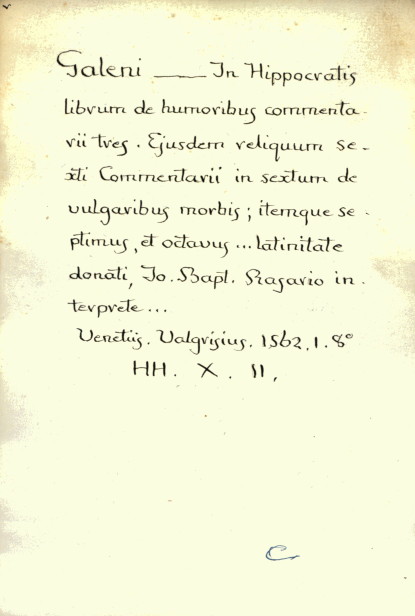 Galeni — In Hippocratis
librum de humoribus commenta-
rii tres. Ejusdem reliquum se-
xti Commentarii in sextum de
vulgaribus morbis; itemque se-
ptimus, et octavus... latinitate
donati, Jo. Bapt. Rasario in-
terprete...
Venetiis. Valgrisius. 1562. 1. 8º
HH. X. 11.
C